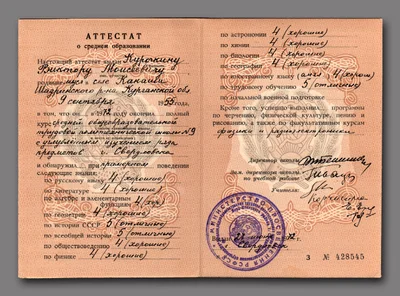 АТТЕСТАТ
о среднем образовании
Настоящий аттестат выдан Курочкину
Виктору Моисеевичу
родившемуся в селе Канаши
Шадринского р-на Курганской обл
9 сентября 1955 г.
в том, что он в 1972 году окончил полный
курс средней общеобразовательной
трудовой политехнической школы №9
с углублённым изучением ряда
предметов г. Свердловска
и обнаружил при примерном поведении
следующие знания:
по русскому языку 4 (хорошо)
по литературе 4 (хорошо)
по алгебре и элементарным
функциям 4 (хор)
по геометрии 4 (хорошо)
по истории СССР 5 (отлично)
по всеобщей истории 5 (отлично)
по обществоведению 4 (хорошо)
по физике 4 (хорошо)
по астрономии 4 (хорошо)
по химии 4 (хорошо)
по биологии 4 (хорошо)
по географии 4 (хорошо)
по иностранному языку (англ) 4 (хорош)
по трудовому обучению 5 (отлично)
по начальной военной подготовке
Кроме того, успешно выполнил программу
по черчению, физической культуре, пению и
рисованию, а также по факультативным курсам
физики и радиоэлектронике
Директор школы
Зам. директора школы
по учебной работе
Учителя:
МИНИСТЕРСТВО ПРОСВЕЩЕНИЯ РСФСР
Выдан 1972 г.
Свердловск
З № 428545